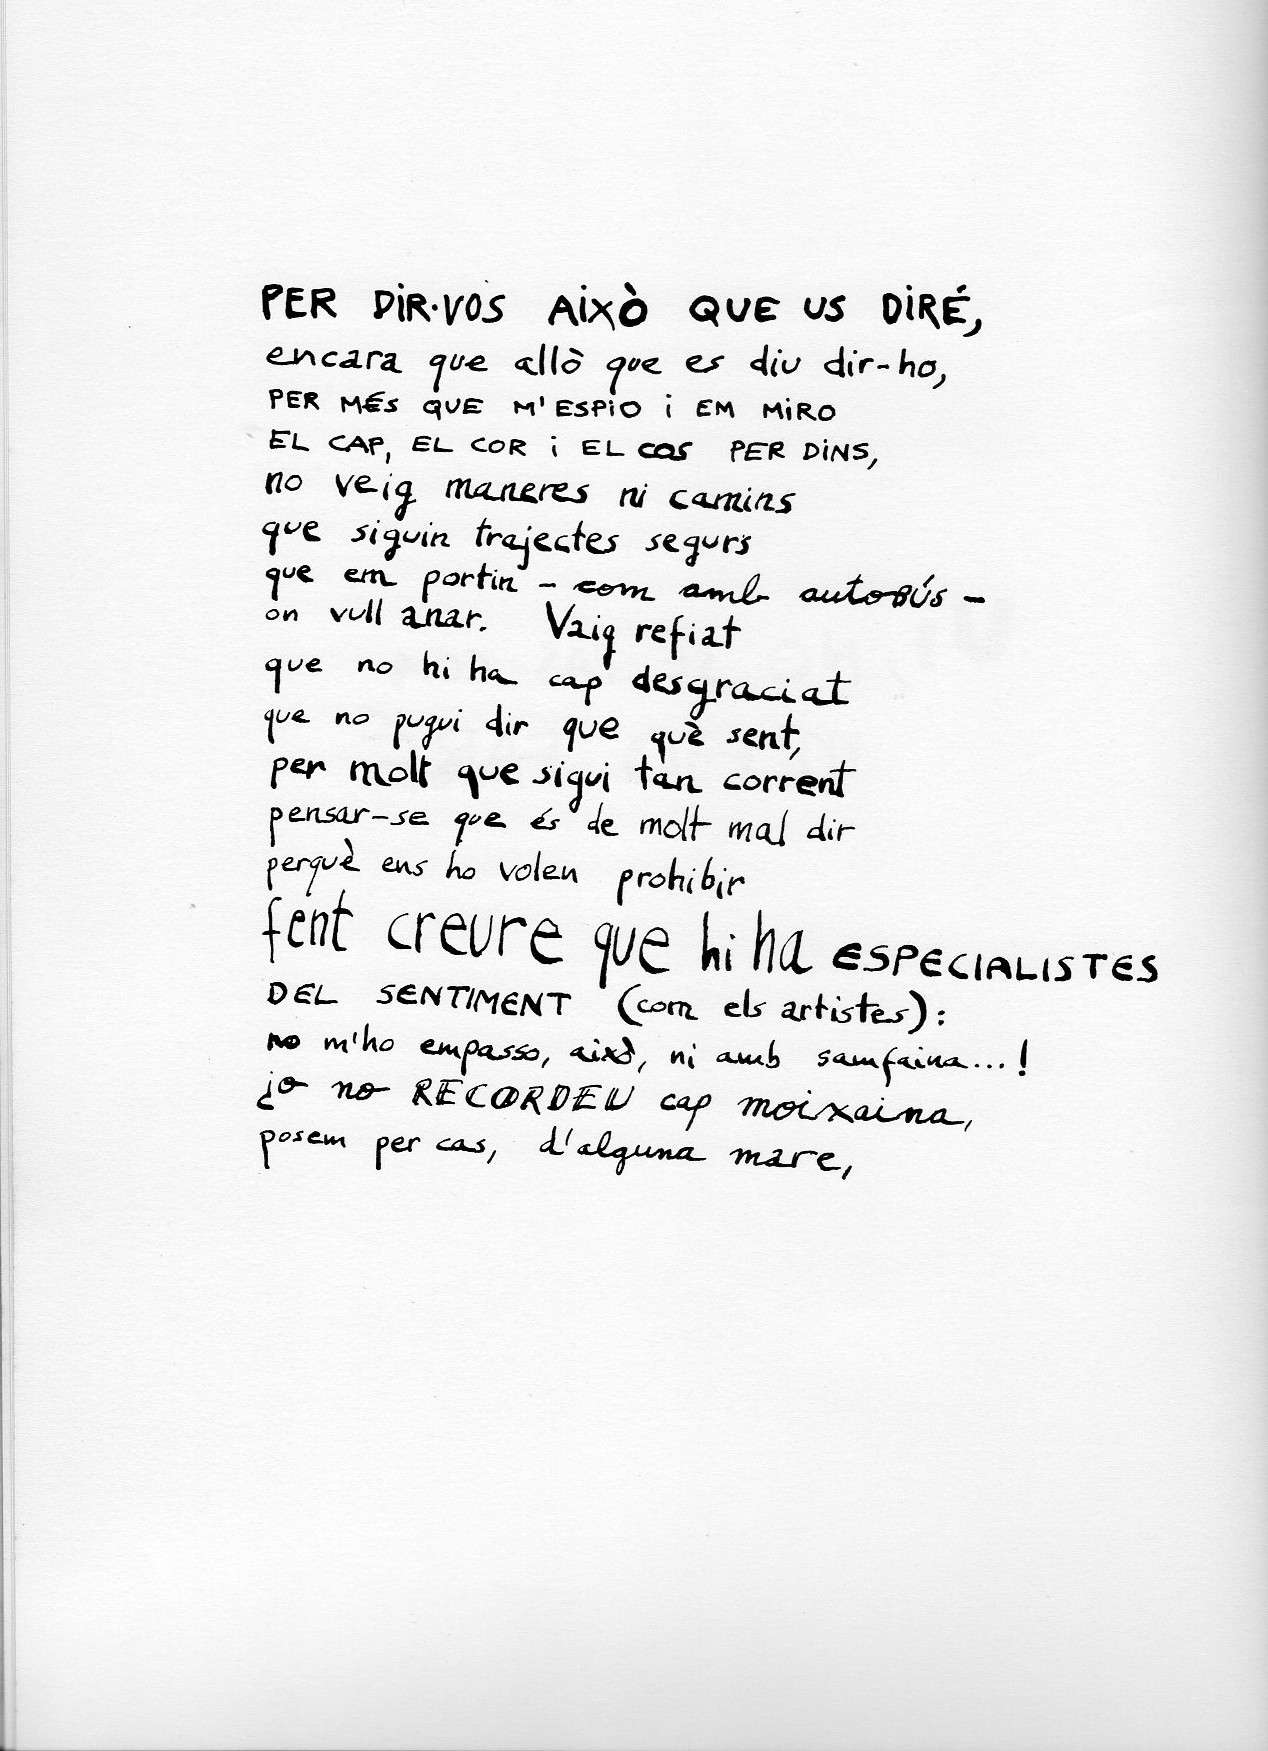 PER DIR·VOS AIXÒ QUE US DIRÉ,
encara que allò que es diu dir-ho,
PER MÉS QUE M'ESPIO i EM MIRO
EL CAP, EL COR i EL COS PER DINS,
no veig maneres ni camins
que siguin trajectes segurs
que em portin - com amb autobús -
on vull anar. Vaig refiat
que no hi ha cap desgraciat
que no pugui dir que què sent,
per molt que sigui tan corrent
pensar-se que és de molt mal dir
perquè ens ho volen prohibir
fent creure que hi ha ESPECIALISTES
DEL SENTIMENT (com els artistes):
no m'ho empasso, això, ni amb samfaina...!
¿o no RECORDEU cap moixaina,
posem per cas, d'alguna mare,